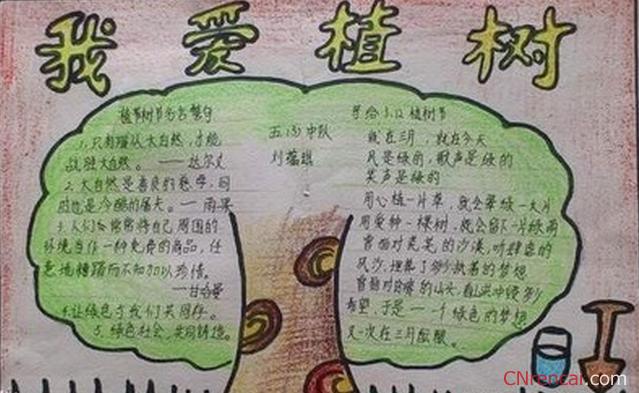 我爱植树
植树节名言警句
1.只有服从大自然,才能
战胜大自然。——达尔文
2.大自然是善良的慈母,同
时也是冷酷的屠夫。——雨果
3.人们常常将自己周围的
环境当作一种免费的商品,任
意地糟蹋而不知加以珍惜。
——甘哈曼
4.让绿色与我们共同存。
5.绿色社会,共同铸造。
五.(3)中队
刘
写给3.12植树节
就在三月,就在今天
风是绿的,歌声是绿的
笑声是绿的
用心植一片草,就会翠绿一大片
用爱种一棵树,就会留下一片绿雨
曾面对荒芜的沙漠,听肆虐的
风沙,埋葬了多少执着的梦想
曾面对的山头,看山洪冲毁多少
希望,于是一个绿色的梦想
又一次在三月酝酿。
CNrencai.com